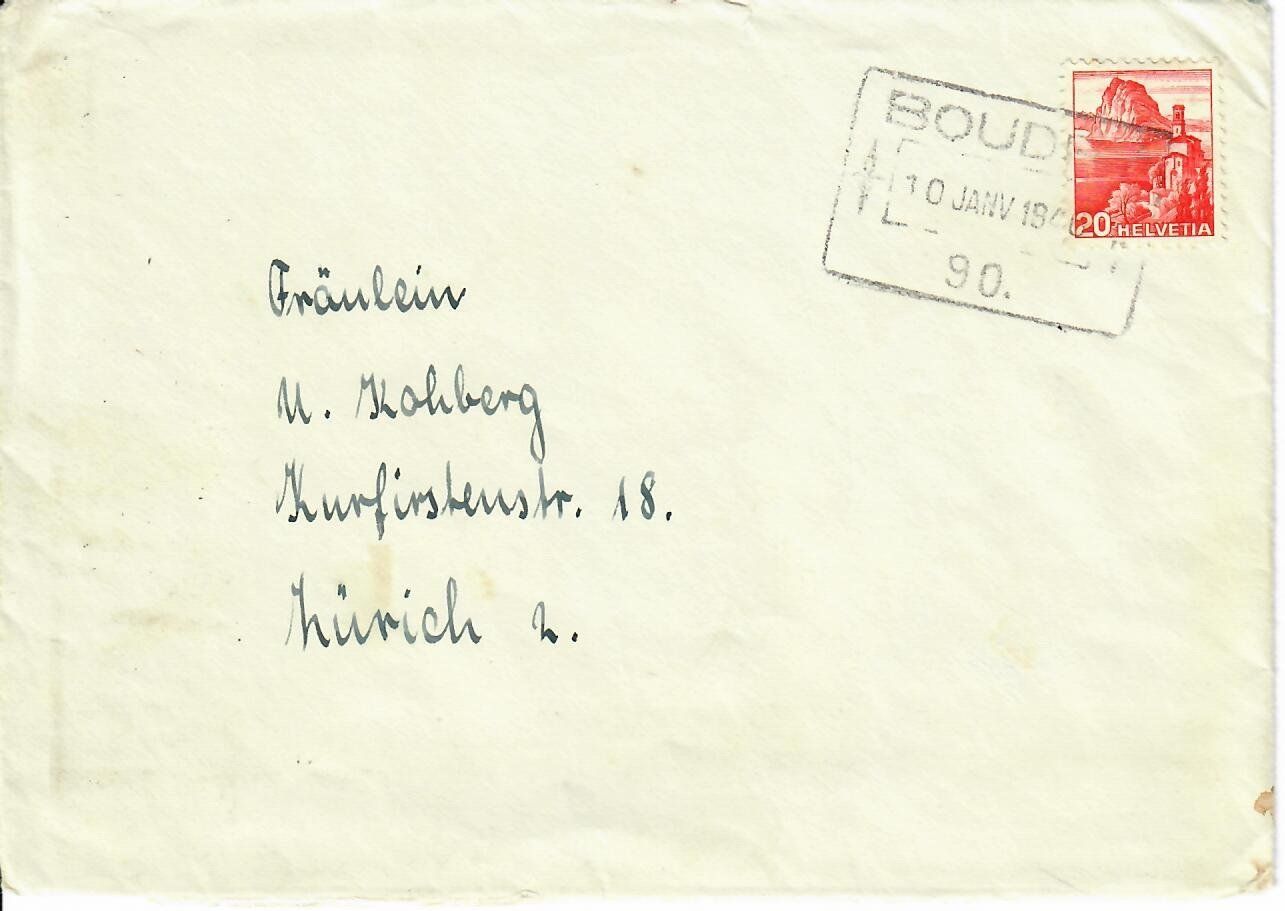 BOUD
10 JANV 194
90.
20 HELVETIA
Fräulein
U. Kohberg
Kurfirstenstr. 18.
Zürich 2.